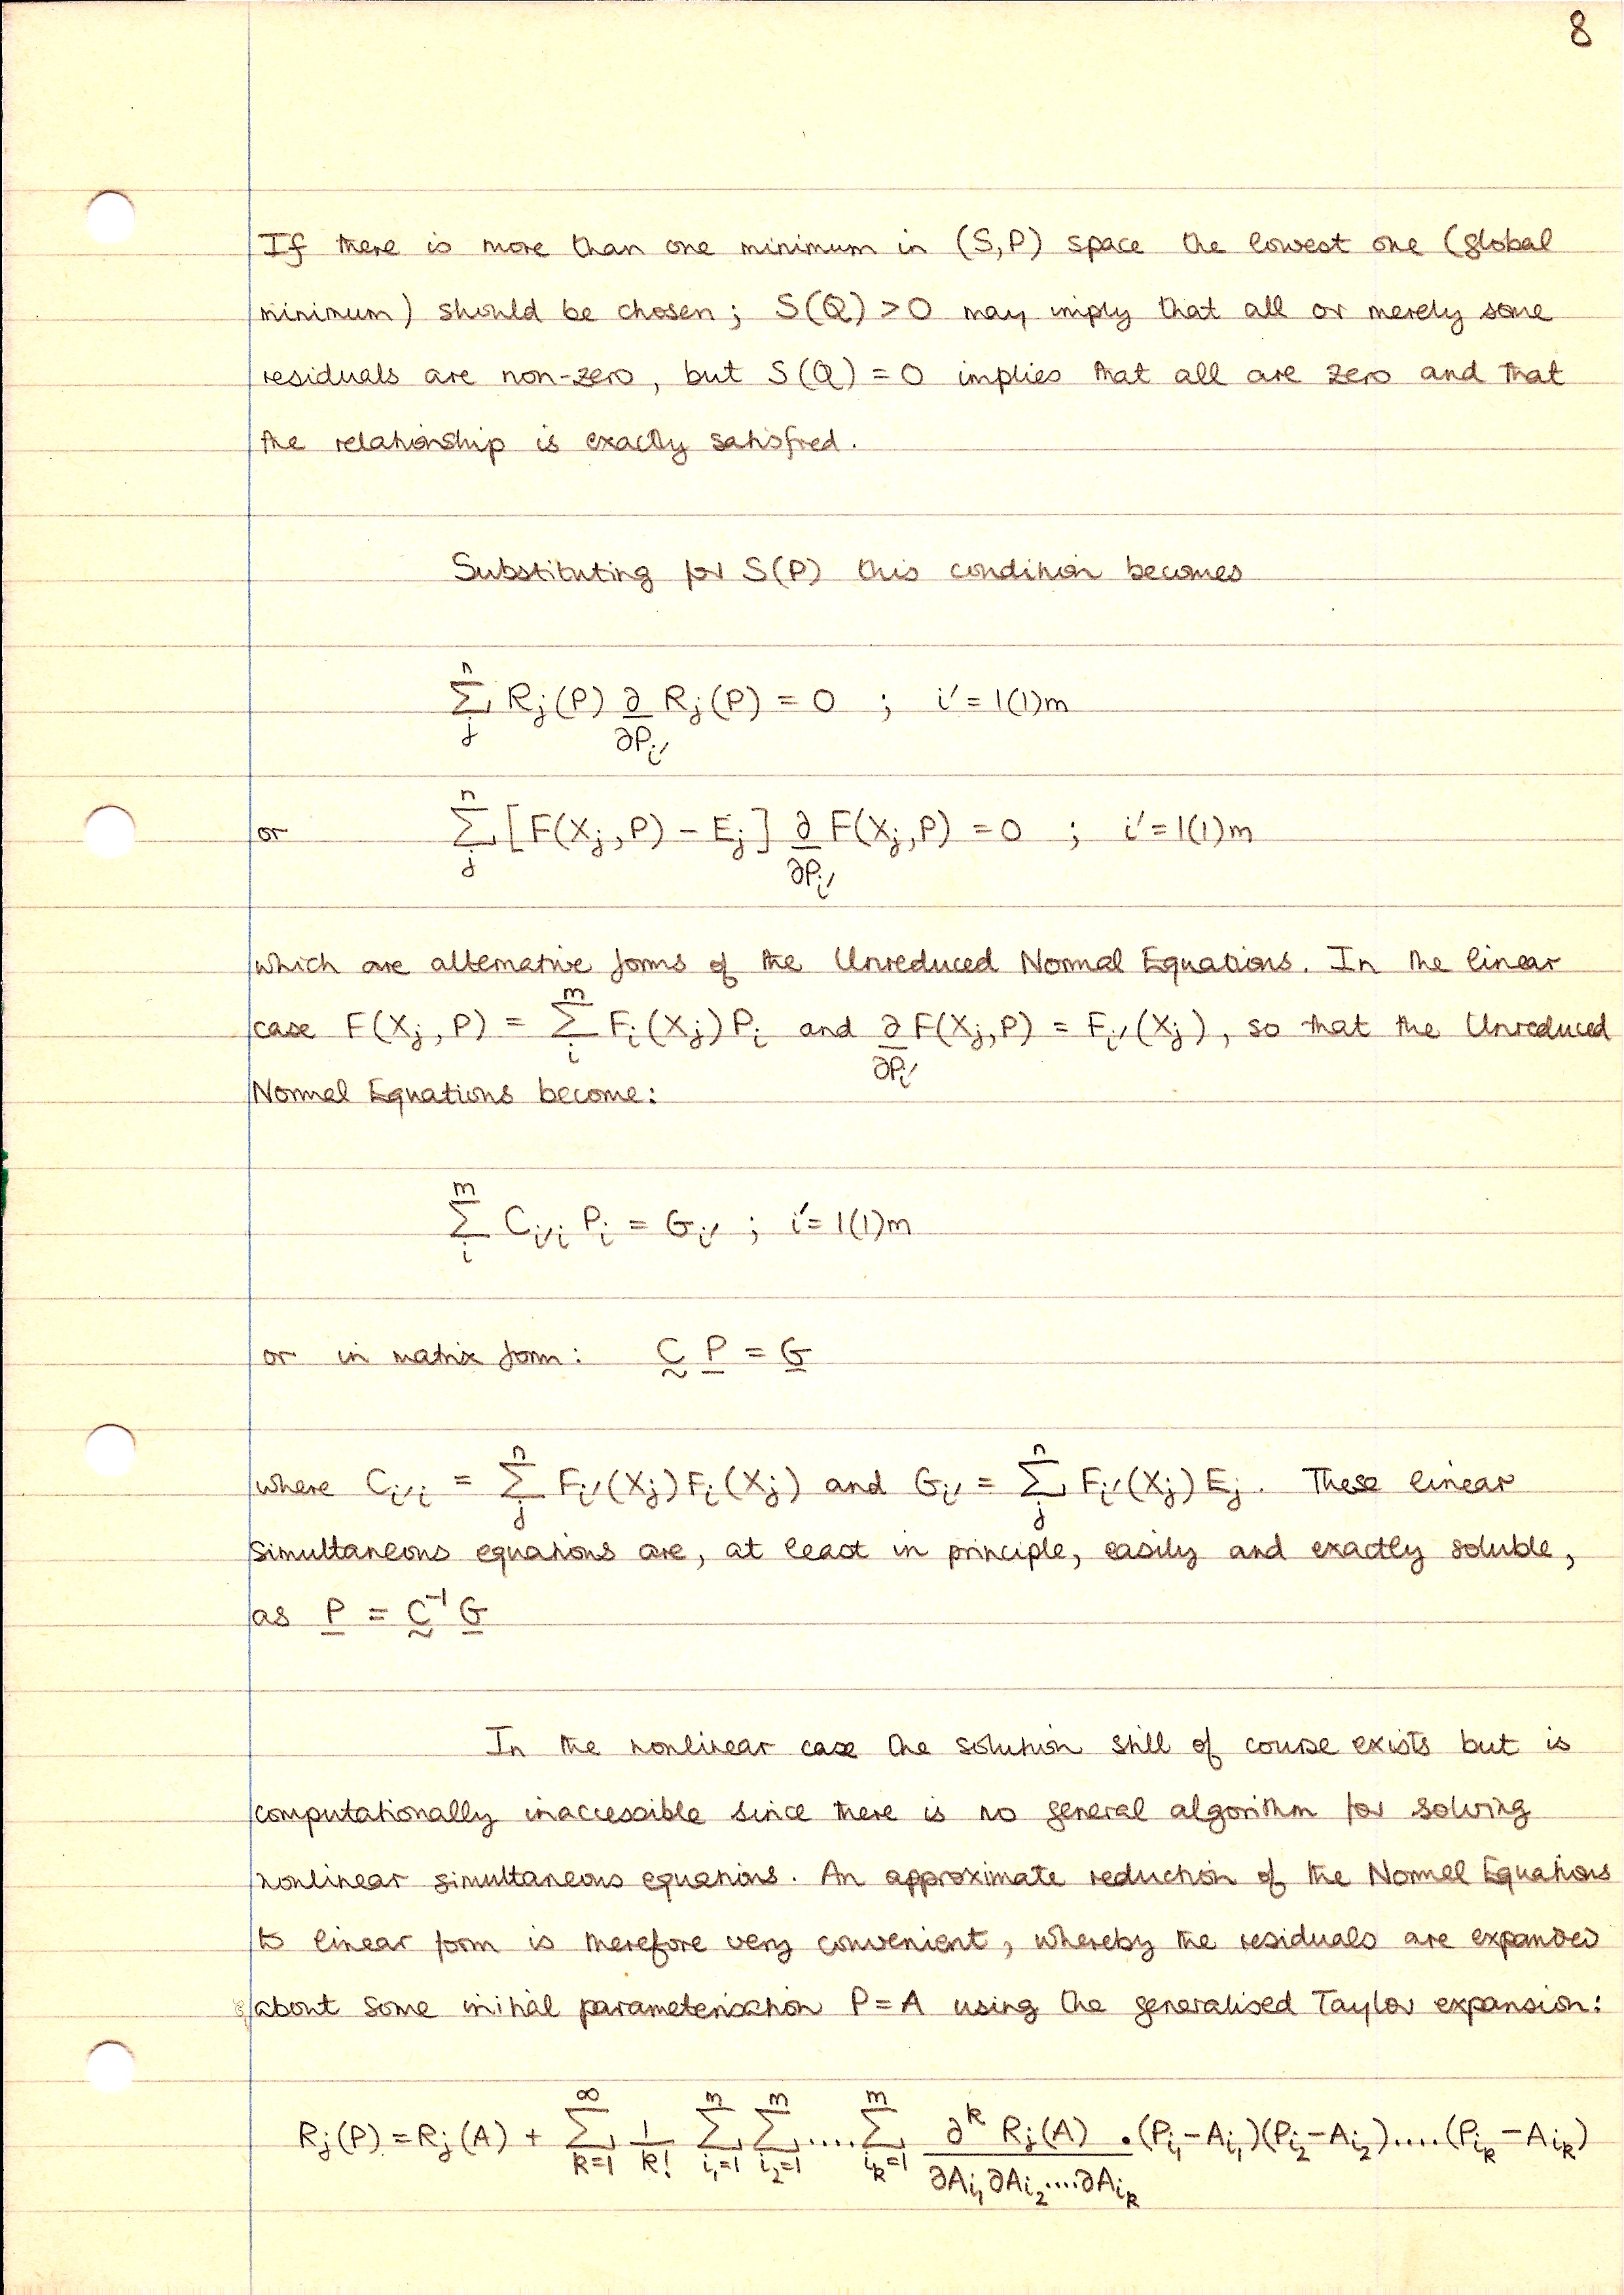 8
If there is more than one minimum in (S,P) space the lowest one (global
minimum) should be chosen; S(Q) > 0 may imply that all or merely some
residuals are non-zero, but S(Q) = 0 implies that all are zero and that
the relationship is exactly satisfied.
Substituting for S(P) this condition becomes
∑_j^n R_j(P) ∂/∂P_i′ R_j(P) = 0 ; i′ = 1(1)m
or ∑_j^n [F(X_j, P) − E_j] ∂/∂P_i′ F(X_j, P) = 0 ; i′ = 1(1)m
which are alternative forms of the Unreduced Normal Equations. In the linear
case F(X_j, P) = ∑_i^m F_i(X_j) P_i and ∂/∂P_i′ F(X_j, P) = F_i′(X_j), so that the Unreduced
Normal Equations become:
∑_i^m C_i′i P_i = G_i′ ; i′ = 1(1)m
or in matrix form: C P = G
where C_i′i = ∑_j^n F_i′(X_j) F_i(X_j) and G_i′ = ∑_j^n F_i′(X_j) E_j. These linear
simultaneous equations are, at least in principle, easily and exactly soluble,
as P = C^−1 G
In the nonlinear case the solution still of course exists but is
computationally inaccessible since there is no general algorithm for solving
nonlinear simultaneous equations. An approximate reduction of the Normal Equations
to linear form is therefore very convenient, whereby the residuals are expanded
about some initial parameterisation P = A using the generalised Taylor expansion:
R_j(P) = R_j(A) + ∑_{k=1}^∞ 1/k! ∑_{i_1=1}^m ∑_{i_2=1}^m .... ∑_{i_k=1}^m ∂^k R_j(A) / ∂A_{i_1} ∂A_{i_2} .... ∂A_{i_k} . (P_{i_1} − A_{i_1})(P_{i_2} − A_{i_2}) .... (P_{i_k} − A_{i_k})